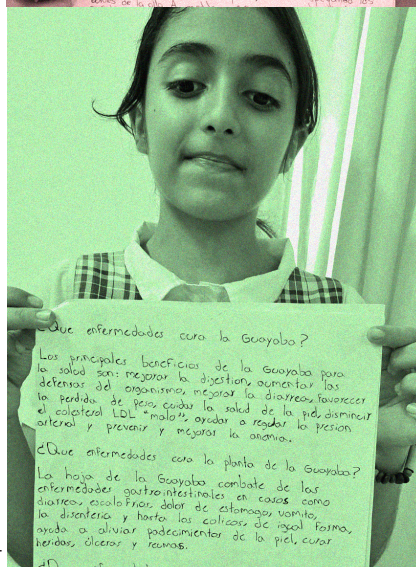 ¿Que enfermedades cura la Guayaba?
Los principales beneficios de la Guayaba para
la salud son: mejorar la digestion, aumentar las
defensas del organismo, mejorar la diarrea, favorecer
la perdida de peso, cuidar la salud de la piel, disminuir
el colesterol LDL "malo", ayudar a regular la presion
arterial y prevenir y mejorar la anemia.
¿Que enfermedades cura la planta de la Guayaba?
La hoja de la Guayaba combate de las
enfermedades gastrointestinales en casos como
diarrea, escalofrios, dolor de estomago, vomito,
la disenteria y hasta los colicos, de igual forma,
ayuda a aliviar padecimientos de la piel, curar
heridas, úlceras y reumas.